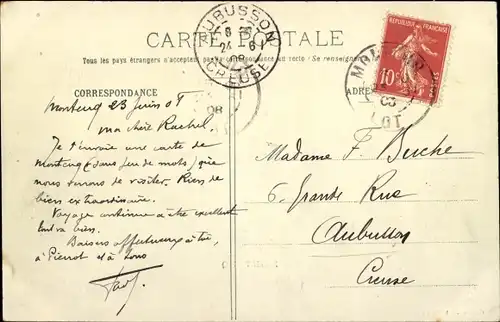 CARTE POSTALE
Tous les pays étrangers n'acceptent pas la correspondance au recto (Se renseigner)
CORRESPONDANCE
ADRE
AUBUSSON
24 -6
08
CREUSE
REPUBLIQUE FRANÇAISE
10
POSTES
LOT
Montcuq 23 Juin 08
ma chère Rachel
Je t'envoie une carte de
Montcuq (sans jeu de mots) que
nous venons de visiter. Rien de
bien extraordinaire.
Voyage continue à être excellent
tout va bien.
Baisers affectueux à toi,
à Pierrot et à tous
Paul
Madame F. Buche
6. Grande Rue
Aubusson
Creuse